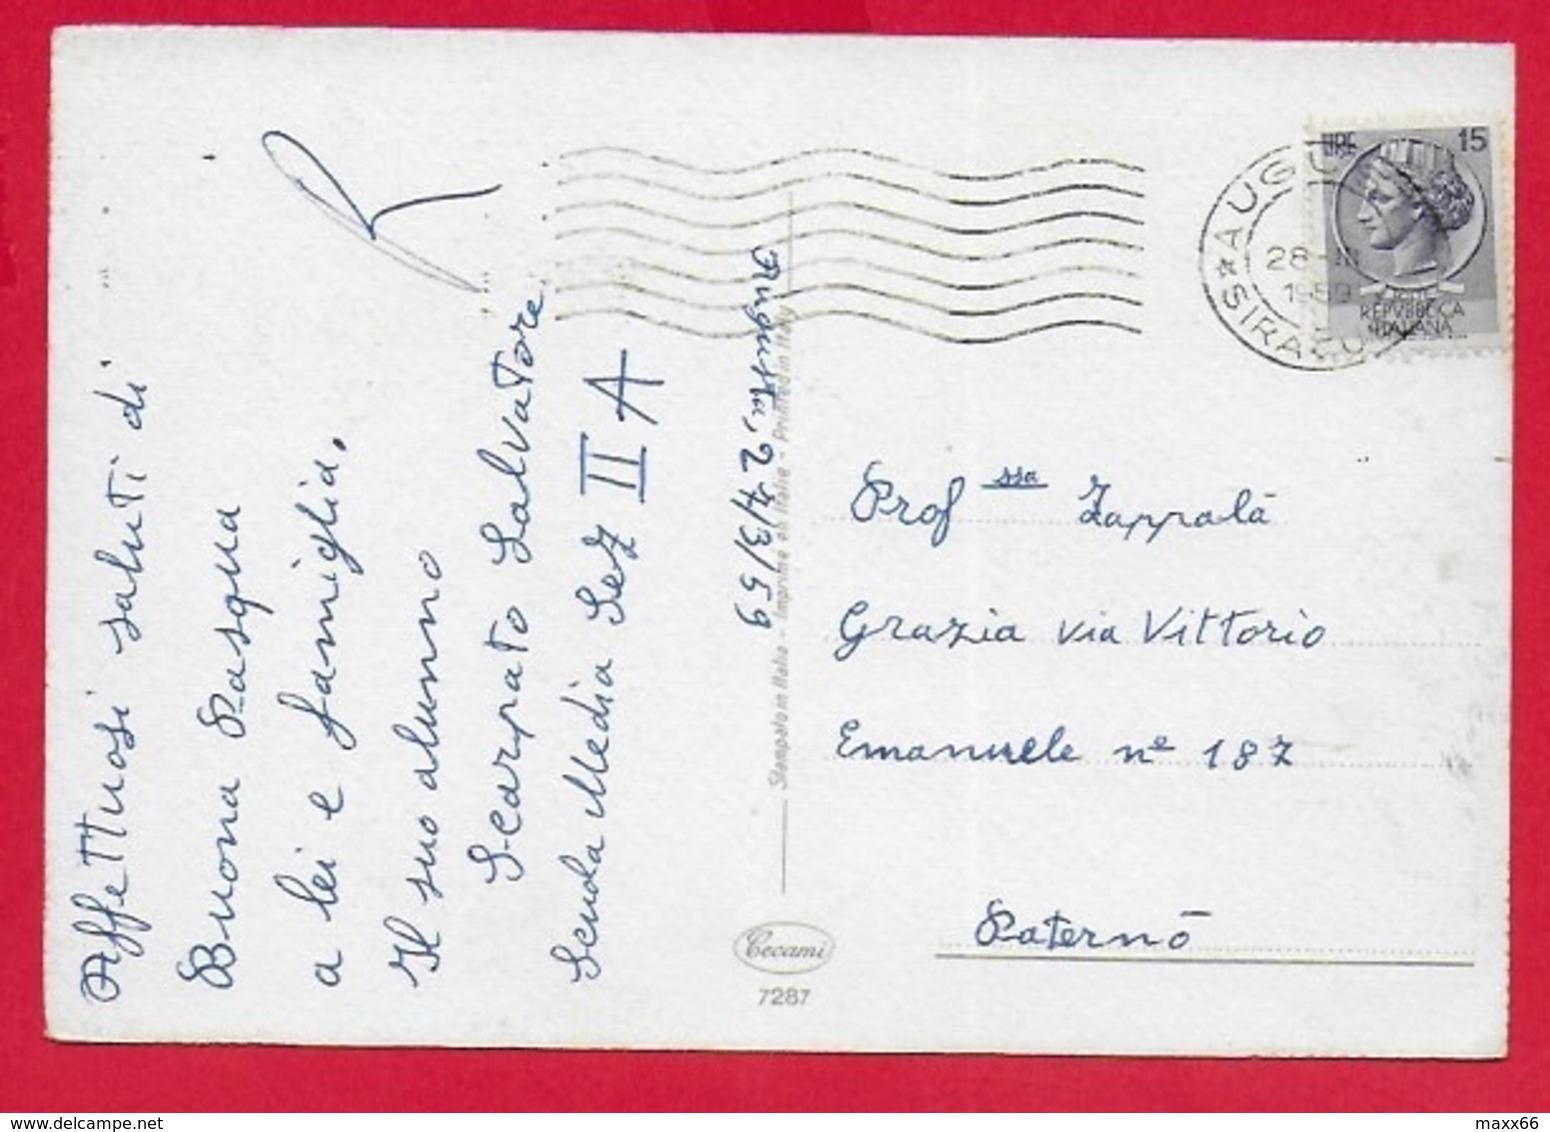 Affettuosi saluti di
Buona Pasqua
a lei e famiglia.
Il suo alunno
Scarpato Salvatore
Scuola Media Sez II A
Augusta, 27/3/59
Stampato in Italia - Imprimé en Italie - Printed in Italy
Cecami
7287
LIRE 15
REPVBBLICA
ITALIANA
28-III
1959
Prof ssa Zappalà
Grazia via Vittorio
Emanuele n° 187
Paternò
maxx66